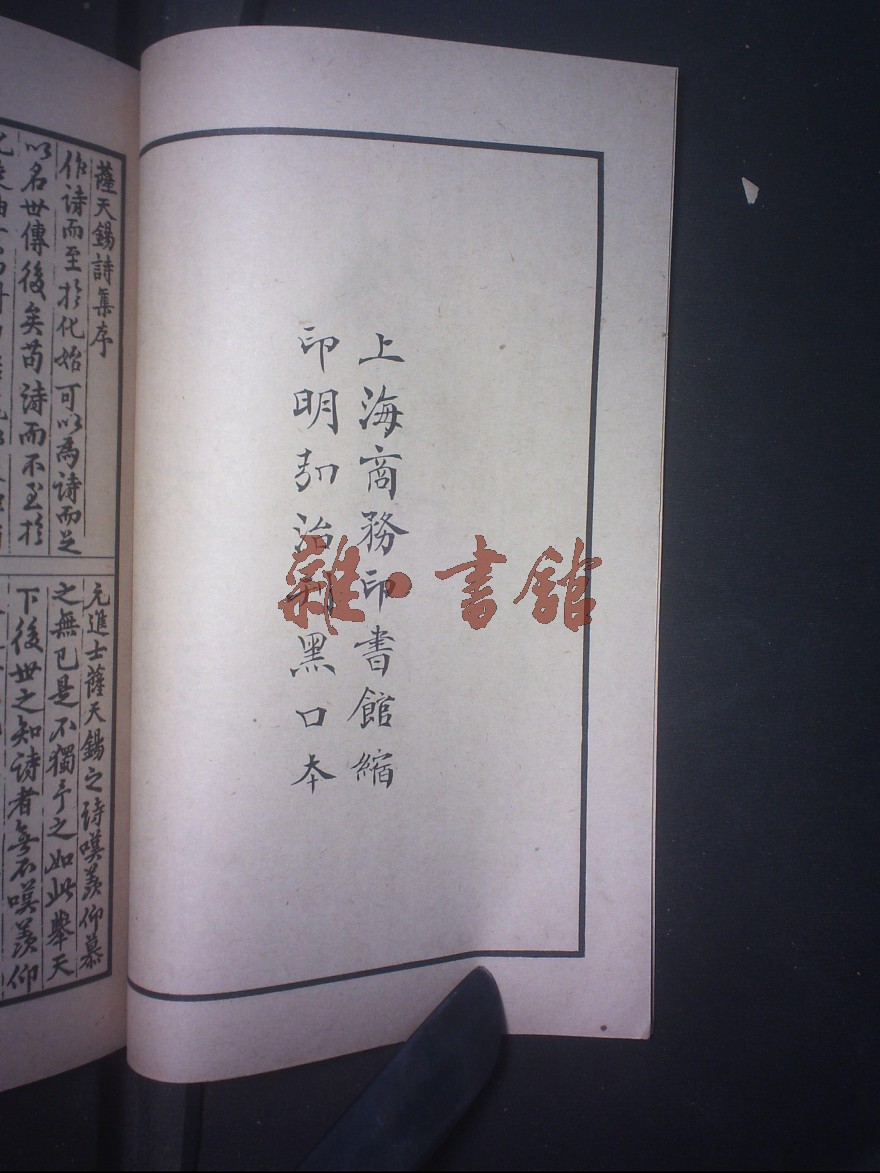 上海商務印書館縮
印明弘治刊黑口本
雜·書館
薩天錫詩集序
作詩而至於化始可以為詩而足
以名世傳後矣苟詩而不至於
元進士薩天錫之詩嘆羨仰慕
之無已是不獨予之如此舉天
下後世之知詩者無不嘆羨仰